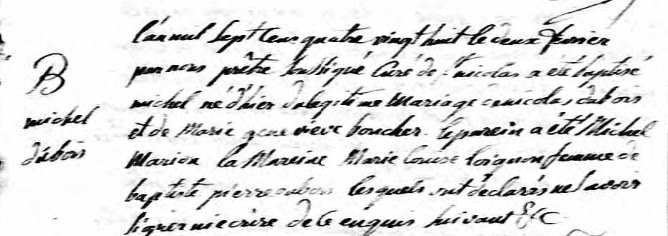 B
michel
dubois
L'an mil sept cens quatre vingt huit le deux fevrier
par nous prêtre soussigné Curé de St nicolas a été baptisé
michel né d'hier du legitime Mariage de nicolas dubois
et de Marie genevieve boucher. le parein a été Michel
Marion la Mareine Marie Louise loignon femme de
baptiste pierre dubois lesquels ont declarés ne savoir
signer ni ecrire de ce enquis suivant &c